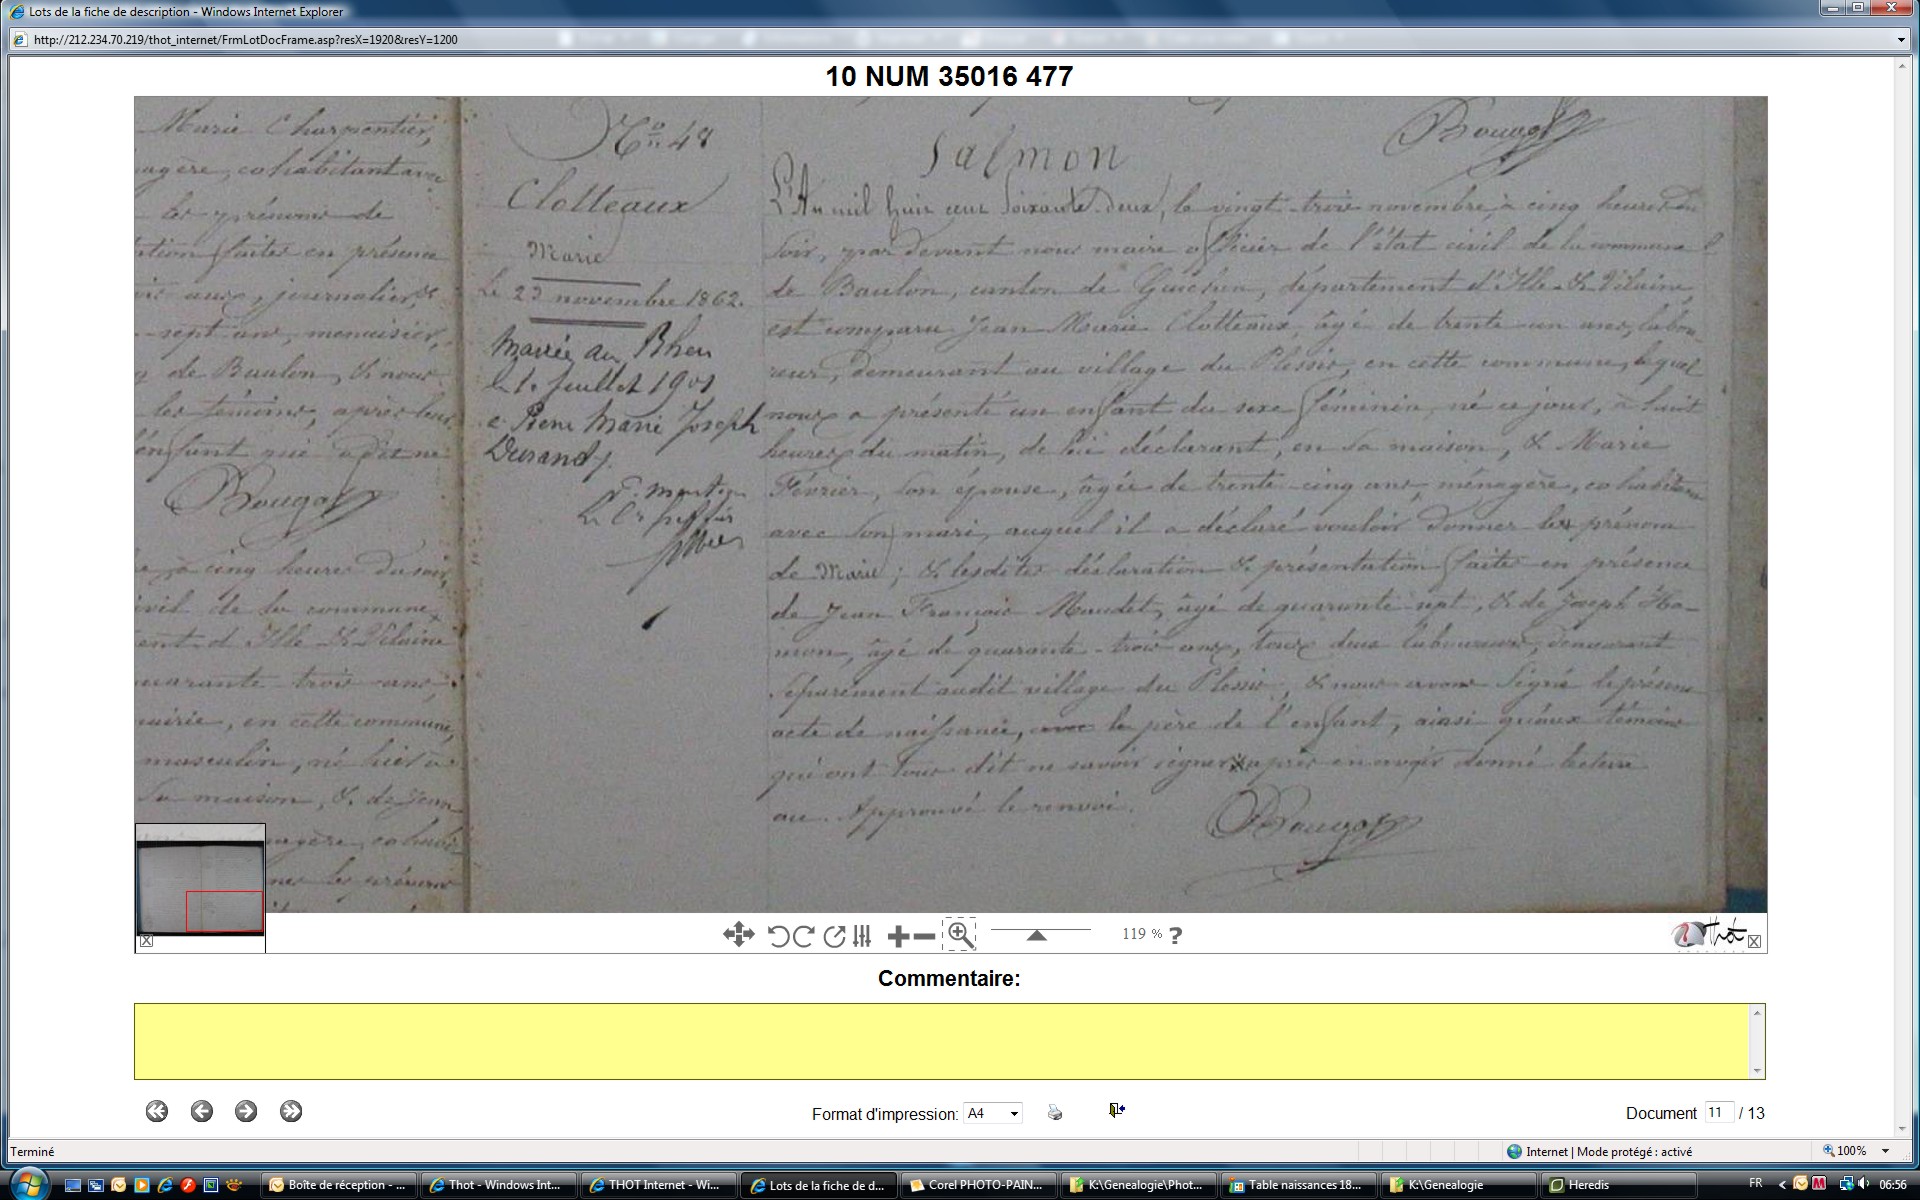 Lots de la fiche de description - Windows Internet Explorer
http://212.234.70.219/thot_internet/FrmLotDocFrame.asp?resX=1920&resY=1200
10 NUM 35016 477
Marie Charpentier,
cohabitant avec
les prénoms de
faites en présence
ans, journalier, &
sept ans, menuisier,
de Baulon, & nous
les témoins, après leur
l'enfant qui a dit ne
Bougot
à cinq heures du soir,
civil de la commune
d'Ille-&-Vilaine
quarante-trois ans,
mairie, en cette commune,
masculin, né hier à
sa maison, & de Jean
les prénoms
No. 48
Clotteaux
Marie
Le 23 novembre 1862.
Mariée au Rheu
le 1er juillet 1901
à Pierre Marie Joseph
Durand.
Salmon
Bougot
L'An mil huit cent soixante-deux, le vingt-trois novembre, à cinq heures du
soir, par devant nous maire officier de l'état civil de la commune
de Baulon, canton de Guichen, département d'Ille-&-Vilaine,
est comparu Jean Marie Clotteaux, âgé de trente-un ans, labou-
reur, demeurant au village du Plessis, en cette commune, lequel
nous a présenté un enfant du sexe féminin, né ce jour, à huit
heures du matin, de lui déclarant, en sa maison, & Marie
Février, son épouse, âgée de trente-cinq ans, ménagère, cohabitant
avec son mari, auquel il a déclaré vouloir donner les prénoms
de Marie; & lesdites déclaration & présentation faites en présence
de Jean François Maudet, âgé de quarante-sept, & de Joseph Ha-
mon, âgé de quarante-trois ans, tous deux laboureurs, demeurant
séparément audit village du Plessis, & nous avons signé le présent
acte de naissance, le père de l'enfant, ainsi qu'aux témoins
qui ont tous dit ne savoir signer après en avoir donné lecture
Approuvé le renvoi.
Bougot
119 %
?
Thot
Commentaire:
Format d'impression: A4
Document 11 / 13
Terminé
Internet | Mode protégé : activé
100%
Boîte de réception - ...
Thot - Windows Int...
THOT Internet - Wi...
Lots de la fiche de d...
Corel PHOTO-PAIN...
K:\Genealogie\Phot...
Table naissances 18...
K:\Genealogie
Heredis
FR
06:56